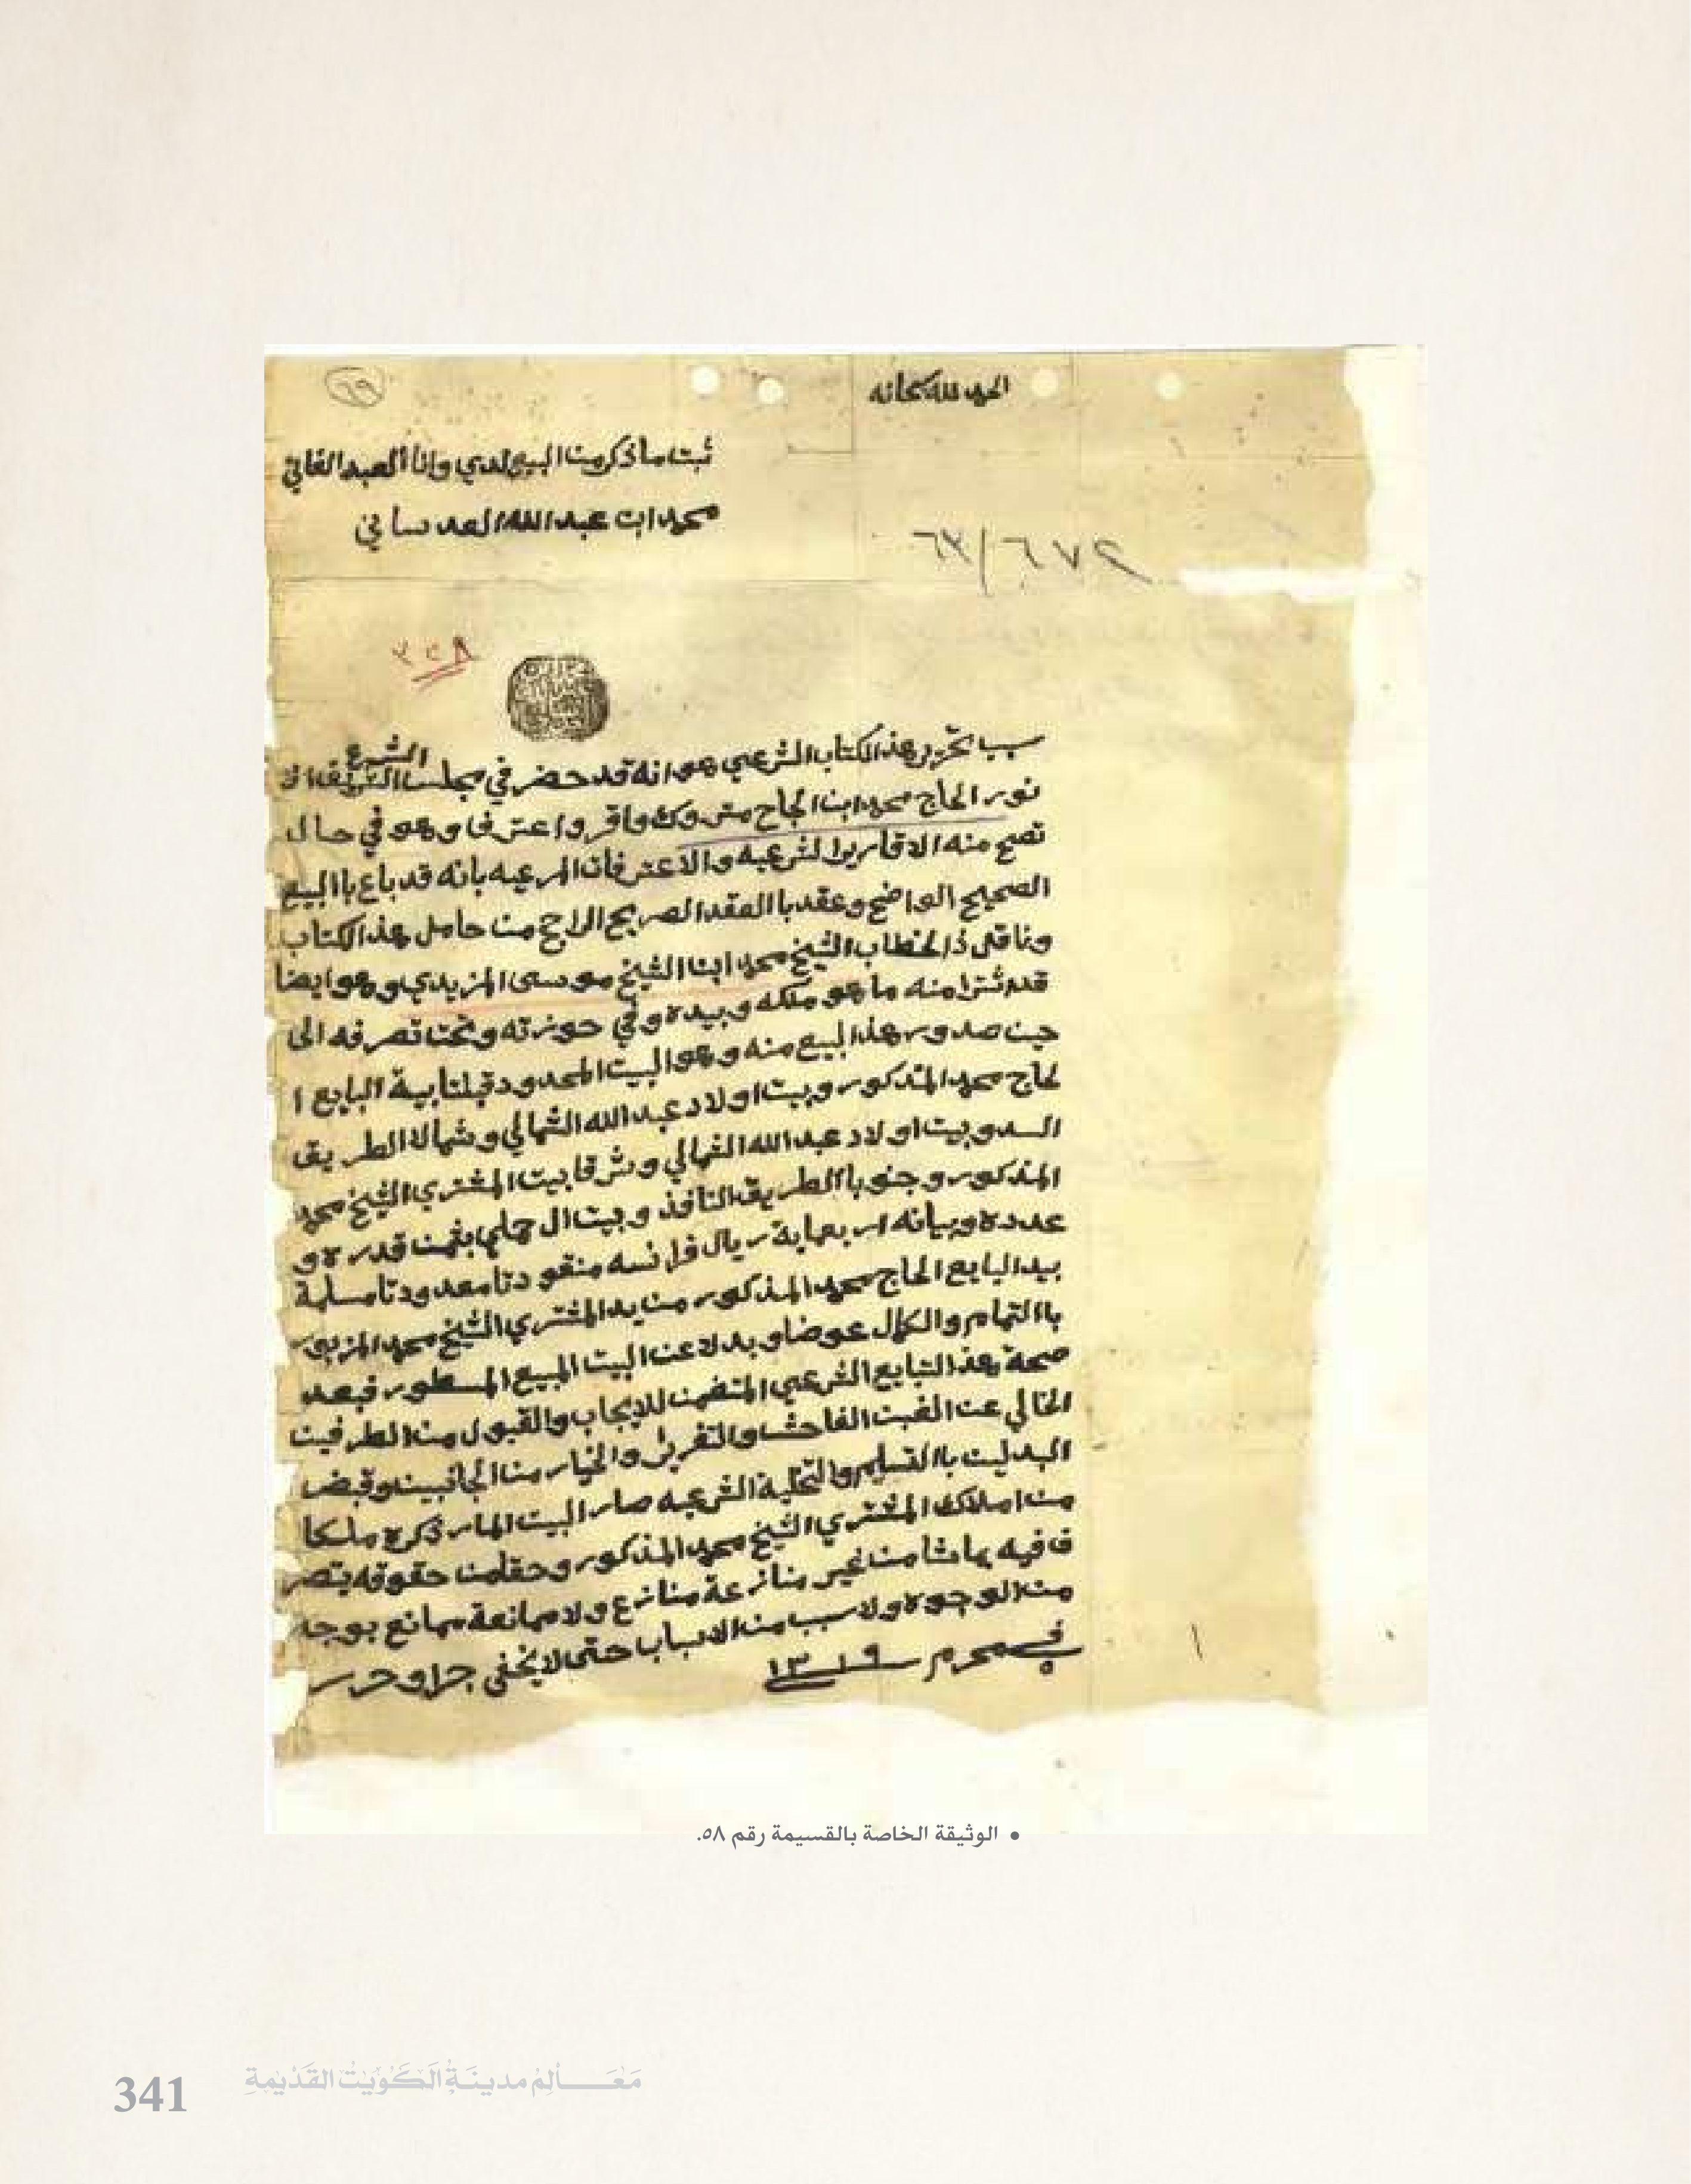 ٦٩
الحمد لله سبحانه
ثبت ما ذكر من البيع لدي وانا العبد الفاني
محمد ابن عبد الله العدساني
سبب تحرير هذ الكتاب الشرعي هو انه قد حضر في مجلس الشرع الشريف الا
نور الحاج محمد ابن الحاج متروك واقر واعترفا وهو في حال
تصح منه الاقارير الشرعيه والاعترفات المرعيه بانه قد باع باالبيع
الصحيح الواضح وعقد باالعقد الصريح الراجح من حامل هذ الكتاب
وناقل ذالخطاب الشيخ محمد ابن الشيخ موسى المزيدي وهو ايضا
قد شترا منه ما هو ملكه وبيده وفي حوزته وتحت تصرفه الى
حين صدور هذ البيع منه وهو البيت المحدود قبلتا بية البايع ا
لحاج محمد المذكور وبيت اولاد عبد الله الشمالي وشمالا الطريق
السد وبيت اولاد عبد الله الشمالي وشرقا بيت المشتري الشيخ محمد
المذكور وجنوبا الطريق النافذ وبيت ال بثمن قدره و
عدده وبيانه اربعماية ريال فرانسه منقودتا معدودتا مسلمة
بيد البايع الحاج محمد المذكور من يد المشتري الشيخ محمد المزبور
باالتمام والكمال عوضا وبدلا عن البيت المبيع المسطور فبعد
صحة هذ التبايع الشرعي المتضمن للايجاب والقبول من الطرفين
الخالي عن الغبن الفاحش والتغرير والخيار من الجانبين وقبض
البدلين باالتسليم والتخلية الشرعيه صار البيت المار ذكره ملكا
من املاك المشتري الشيخ محمد المذكور وحقا من حقوقه يتصر
ف فيه بماشا من غير منازعة منازع ولا ممانعة ممانع بوجه
من الوجوه ولا سبب من الاسباب حتى لا يخفى جرا وحرر
في محرم سنة ١٣١٩
• الوثيقة الخاصة بالقسيمة رقم ٥٨.
341 معالم مدينة الكويت القديمة